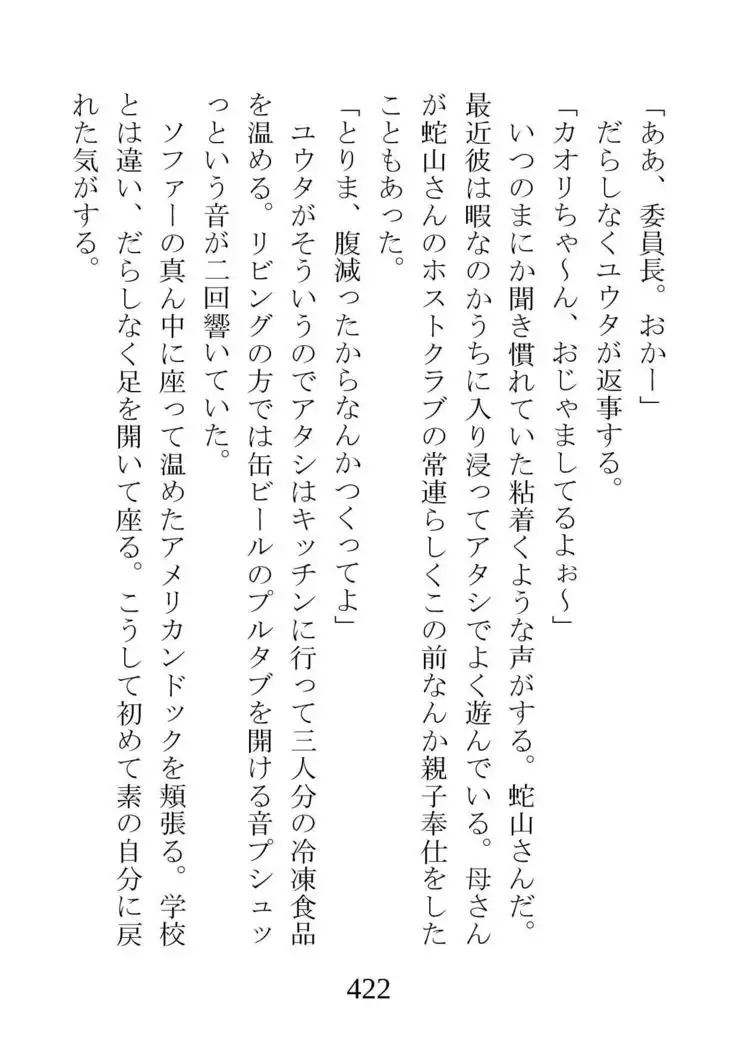 「ああ、委員長。おかー」
だらしなくユウタが返事する。
「カオリちゃ～ん、おじゃましてるよぉ～」
いつのまにか聞き慣れていた粘着くような声がする。蛇山さんだ。
最近彼は暇なのかうちに入り浸ってアタシでよく遊んでいる。母さん
が蛇山さんのホストクラブの常連らしくこの前なんか親子奉仕をした
こともあった。
「とりま、腹減ったからなんかつくってよ」
ユウタがそういうのでアタシはキッチンに行って三人分の冷凍食品
を温める。リビングの方では缶ビールのプルタブを開ける音プシュッ
っという音が二回響いていた。
ソファーの真ん中に座って温めたアメリカンドックを頬張る。学校
とは違い、だらしなく足を開いて座る。こうして初めて素の自分に戻
れた気がする。
422